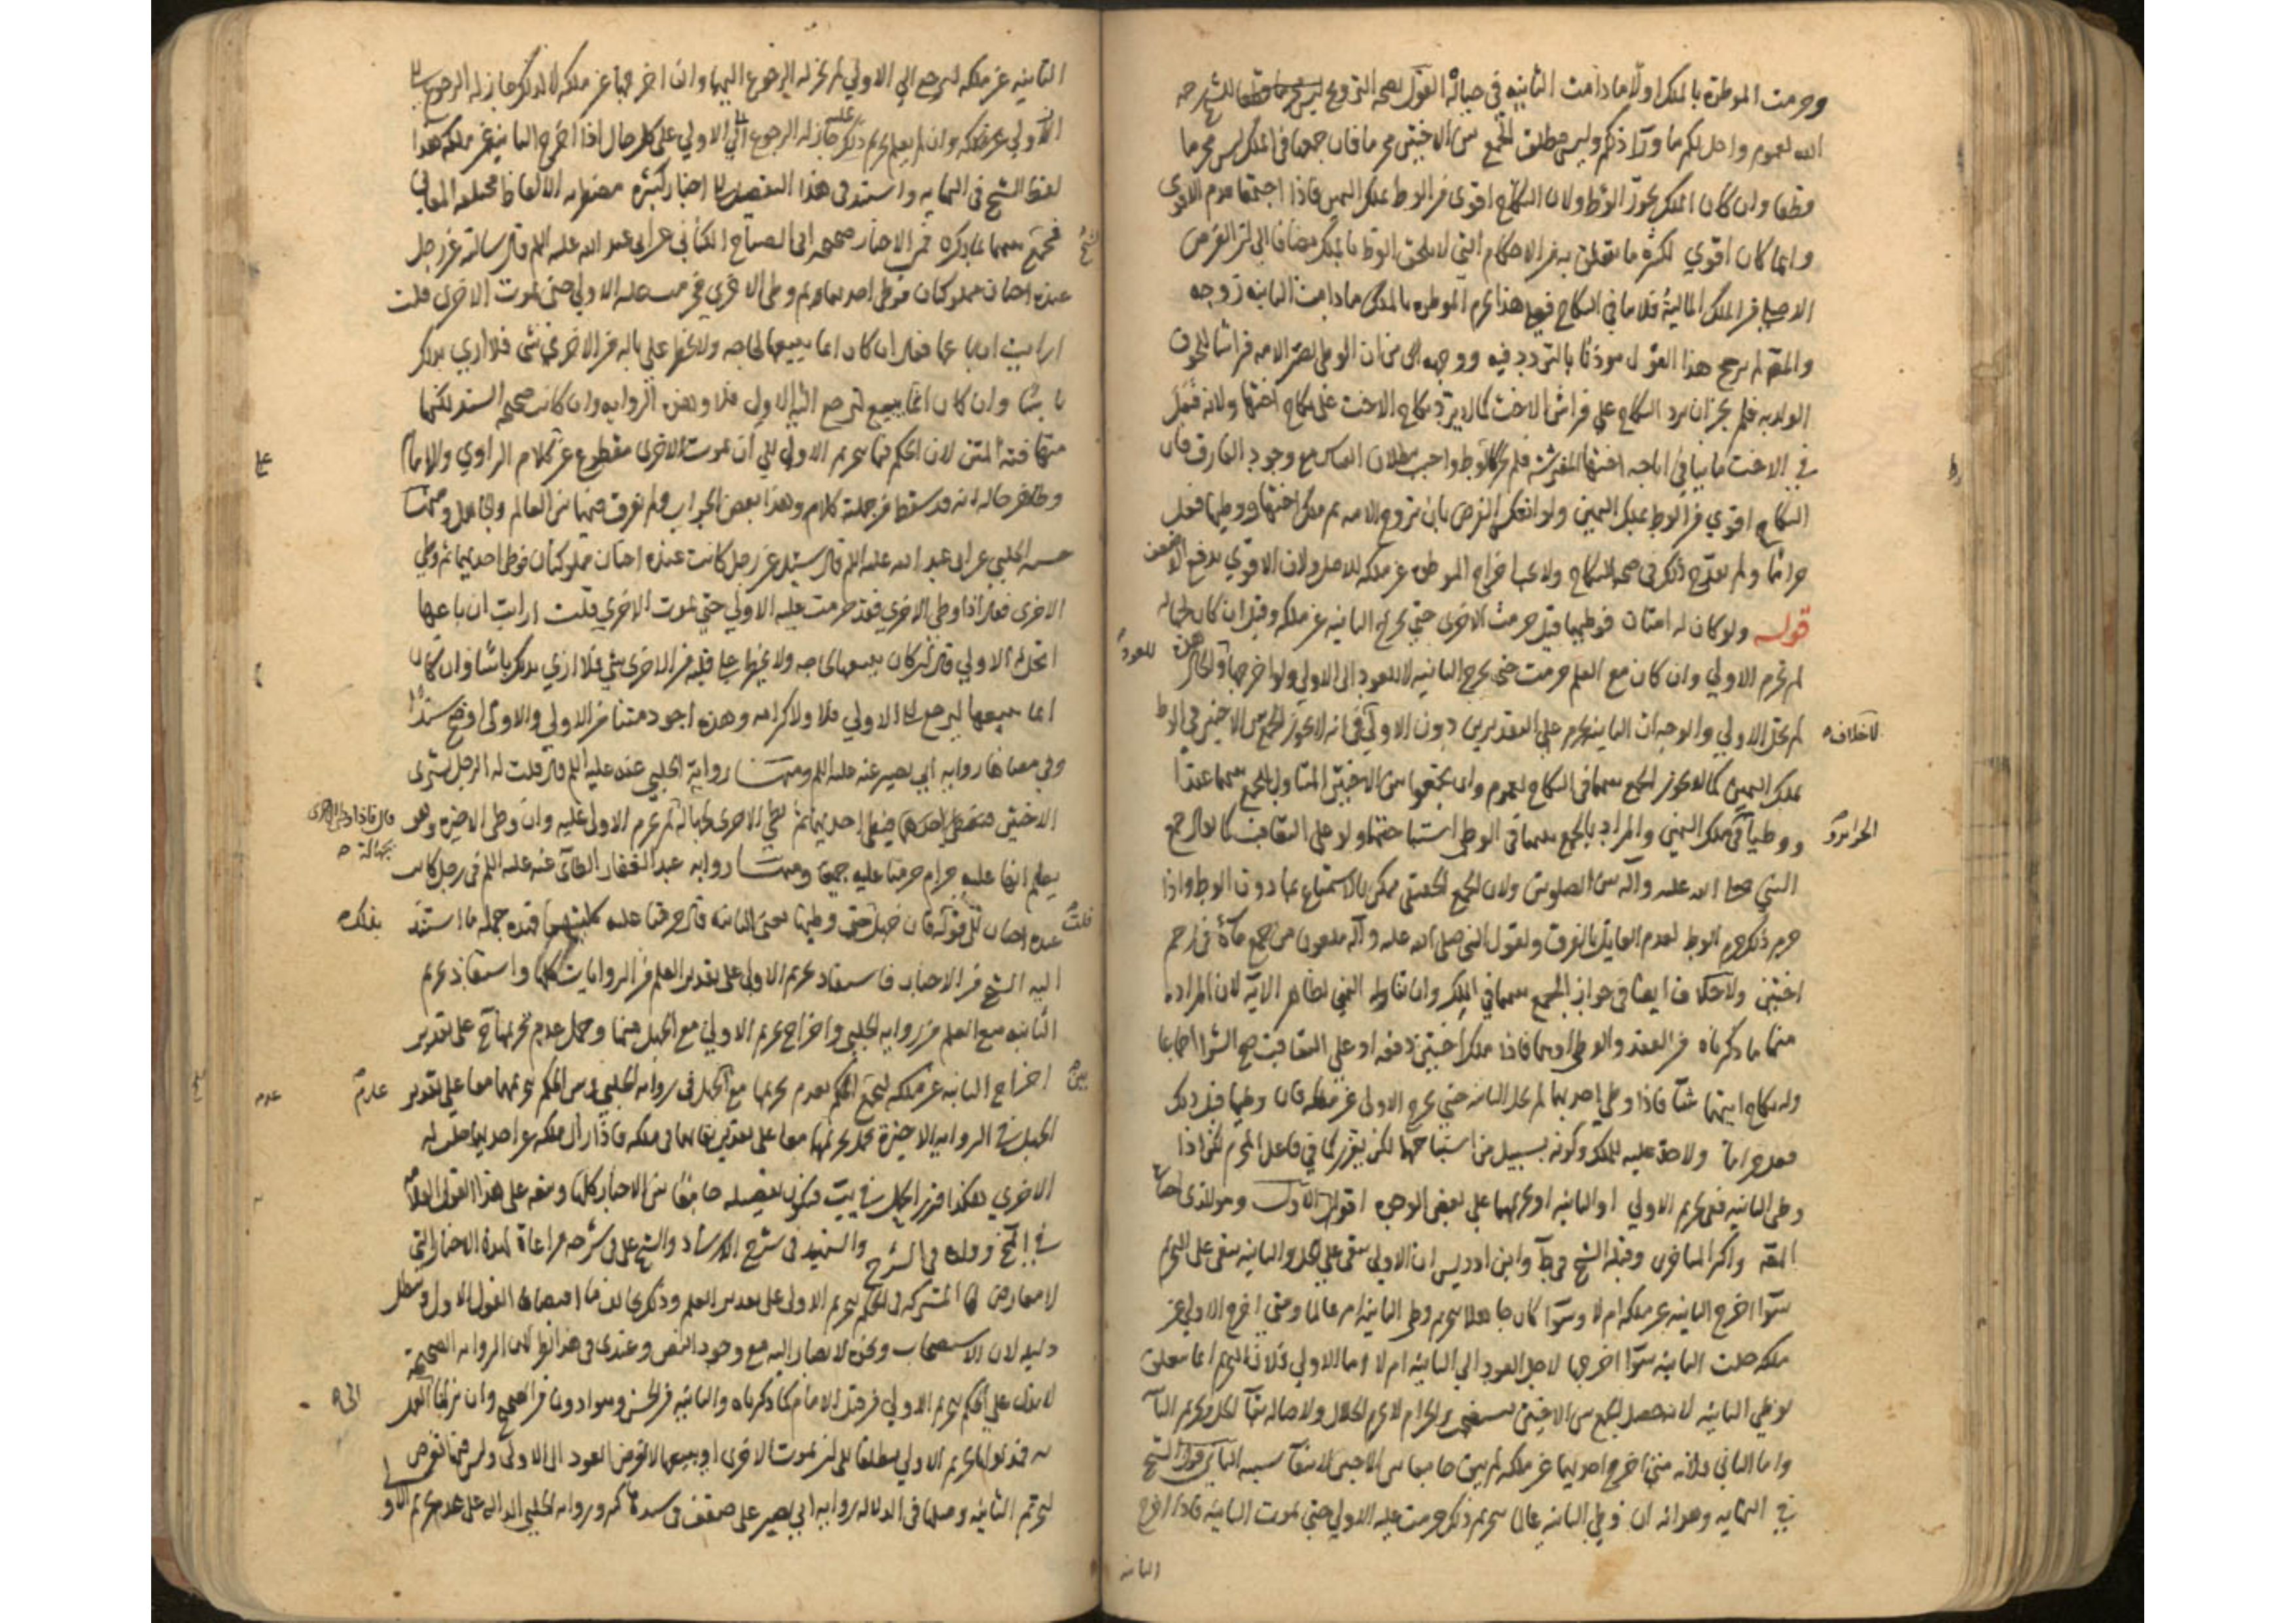 وحرمت الموطوءة بالملك اولا مادامت الثانية في حباله القول بصحة التزويج للشيخ رحمه
الله لعموم واحل لكم ما وراء ذلكم وليس مطلق الجمع بين الاختين محرما فان جمعهما في الملك ليس محرما
قطعا وان كان الملك يجوز الوطء ولان النكاح اقوى من الوطء بملك اليمين فاذا اجتمعا قدم الاقوى
وانما كان اقوى لكثرة ما يتعلق به من الاحكام التي لا يلحق الوطء بالملك مضافا الى ان الغرض
الاصلي من الملك المالية فلا ينافي النكاح فعلى هذا تحرم الموطوءة بالملك مادامت الثانية زوجة
والمصنف لم يرجح هذا القول موذنا بالتردد فيه ووجهه من ان الوطي يصير الامة فراشا
الولد به فلم يجز ان يرد النكاح على فراش الاخت كما لا يرد نكاح الاخت على نكاح اختها ولانه فعل
في الاخت ما ينافي اباحة اختها المفترشة فلم يجز كالوطء واجيب ببطلان القياس مع وجود الفارق فان
النكاح اقوى من الوطء بملك اليمين ولو انعكس الفرض بان تزوج الامة ثم ملك اختها ووطيها فعل
حراما ولم يقدح ذلك في صحة النكاح ولا يجب اخراج الموطوءة عن ملكه للاصل ولان الاقوى يدفع الاضعف
قوله ولو كان له امتان فوطيهما قيل حرمت الاخرى حتى يخرج الثانية عن ملكه وقيل ان كان لجهالة
لم تحرم الاولى وان كان مع العلم حرمت حتى يخرج الثانية لا للعود الى الاولى ولو اخرجها والحال هذه للعود
لم تحل الاولى والوجه ان الثانية تحرم على التقديرين دون الاولى لا خلاف في انه لا يجوز الجمع بين الاختين في الوطء
بملك اليمين كما لا يجوز الجمع بينهما في النكاح لعموم وان تجمعوا بين الاختين المتناول للجمع بينهما عقدا
ووطيا في ملك اليمين والمراد بالجمع بينهما في الوطي استباحتهما ولو على التعاقب كما يقال جمع
النبي صلى الله عليه وآله بين الصلوتين ولان الجمع الحقيقي ممكن بالاستمتاع بما دون الوطء واذا
حرم ذلك حرم الوطء لعدم القايل بالفرق ولقول النبي صلى الله عليه وآله ملعون من جمع ماءه في رحم
اختين ولا خلاف ايضا في جواز الجمع بينهما في الملك وان تناوله النهي لظاهر الآية لان المراد
منها ما ذكرناه من العقد والوطء فاذا ملك اختين دفعة او على التعاقب صح الشراء اجماعا
وله نكاح ايتهما شاء فاذا وطي احديهما لم تحل الثانية حتى يخرج الاولى عن ملكه فان وطيها قبل ذلك
فعل حراما ولا حد عليه للملك وكونه بسبيل من استباحتها لكن يعزر كما في فاعل المحرم لكن اذا
وطي الثانية ففي تحريم الاولى او الثانية او تحريمهما على بعض الوجوه اقوال الاول وهو الذي اختاره
المصنف واكثر المتاخرين وقبله الشيخ في ط وابن ادريس ان الاولى تبقى على الحل والثانية تبقى على التحريم
سواء اخرج الثانية عن ملكه ام لا وسواء كان جاهلا بتحريم وطي الثانية ام عالما ومتى اخرج الاولى عن
ملكه حلت الثانية سواء اخرجها لاجل العود الى الثانية ام لا اما الاولى فلان التحريم انما يتعلق
بوطي الثانية لانه حصل الجمع بين الاختين والحرام لا يحرم الحلال ولاصالة بقاء الحل وتحريم
واما الثاني فلانه متى اخرج احديهما عن ملكه لم يبق جامعا بين الاختين لانتفاء سببه الثاني قول الشيخ
في النهاية وهو انه ان وطي الثانية عالما بتحريم ذلك حرمت عليه الاولى حتى تموت الثانية فاذا اخرج
الثانية
الثانية عن ملكه ليرجع الى الاولى لم يجز له الرجوع اليها وان اخرجها عن ملكه لا لذلك جاز له الرجوع الى
الاولى وان لم يعلم تحريم ذلك عليه جاز له الرجوع الى الاولى على كل حال اذا اخرج الثانية عن ملكه هذا
لفظ الشيخ في النهاية واستند في هذا التفصيل الى اخبار كثيرة مضطربة الالفاظ مختلفة المعاني
فجمع الشيخ بينهما بما ذكره فمن الاخبار صحيحة ابي الصباح الكناني عن ابي عبد الله عليه السلم قال سالته عن رجل
عنده اختان مملوكتان فوطي احديهما ثم وطي الاخرى حرمت عليه الاولى حتى تموت الاخرى قلت
ارايت ان باعها فقال ان كان انما يبيعها لحاجة ولا يخطر على باله من الاخرى شي فلا ارى بذلك
باسا وان كان انما يبيع ليرجع الى الاولى فلا وهذه الرواية وان كانت صحيحة السند لكنها
متهافتة المتن لان الحكم فيها بتحريم الاولى الى ان تموت الاخرى مقطوع عن كلام الراوي والامام
وظاهر حاله انه قد سقط من جملة كلام وهذا بعض الجواب ولم يفرق فيها بين العالم والجاهل ومنها
حسنة الحلبي عن ابي عبد الله عليه السلم قال سئل عن رجل كانت عنده اختان مملوكتان فوطي احديهما ثم وطي
الاخرى فقال اذا وطي الاخرى فقد حرمت عليه الاولى حتى تموت الاخرى قلت ارايت ان باعها
اتحل له الاولى قال ان كان يبيعها لحاجة ولا يخطر على قلبه من الاخرى شي فلا ارى بذلك باسا وان كان
انما يبيعها ليرجع الى الاولى فلا ولا كرامة وهذه اجود متنا من الاولى والاولى اوضح سندا
وفي معناها رواية ابي بصير عنه عليه السلم ومنها رواية الحلبي عنه عليه السلم قال قلت له الرجل يشتري
الاختين فيطي احديهما ثم يطي الاخرى بجهالة قال فاذا وطي الاخرى بجهالة لم تحرم الاولى عليه وان وطي الاخيرة وهو
يعلم انها عليه حرام حرمتا عليه جميعا ومنها رواية عبد الغفار الطائي عنه عليه السلم في رجل كانت
عنده اختان الى قوله قلت فان جهل ذلك حتى وطيها يعني الثانية قال حرمتا عليه كلتيهما فهذه جملة ما استند بذلك
اليه الشيخ من الاخبار فاستفاد تحريم الاولى على تقدير العلم من الروايات كلها واستفاد تحريم
الثانية مع العلم من رواية الحلبي واخراج تحريم الاولى مع الجهل منها وحمل عدم تحريمها على تقدير
اخراج الثانية عن ملكه ليجمع بين الحكم بعدم تحريمها مع الجهل في رواية الحلبي وبين الحكم بتحريمهما معا على تقدير عدم
الجهل في الرواية الاخيرة فحمل تحريمهما معا على تقدير بقائهما في ملكه فاذا زال ملكه عن احديهما حلت له
الاخرى هكذا قرر الحل في بيت فيكون تفصيله جامعا بين الاخبار كلها وتبعه على هذا القول العلامة
في المختلف وولده في الشرح والشهيد في شرح الارشاد والشيخ علي في شرحه مراعاة لهذه الاخبار التي
لا معارض لها المشتركة في الحكم بتحريم الاولى على تقدير العلم وذلك خلاف ما اقتضاه القول الاول ويبطل
دليله لان الاستصحاب ونحوه لا يصار اليه مع وجود النص وعندي في هذا نظر لان الرواية الصحيحة
لا تدل على الحكم بتحريم الاولى من قبل الامام كما ذكرناه والثانية من الحسن وهو ادون من الصحيح وان
به فمدلولها تحريم الاولى مطلقا الى ان تموت الاخرى او يبيعها لا لغرض العود الى الاولى وليس فيها تعرض
لتحريم الثانية ومثلها في الدلالة رواية ابي بصير على ضعف في سندها ورواية الحلبي الدالة على عدم تحريم الاولى